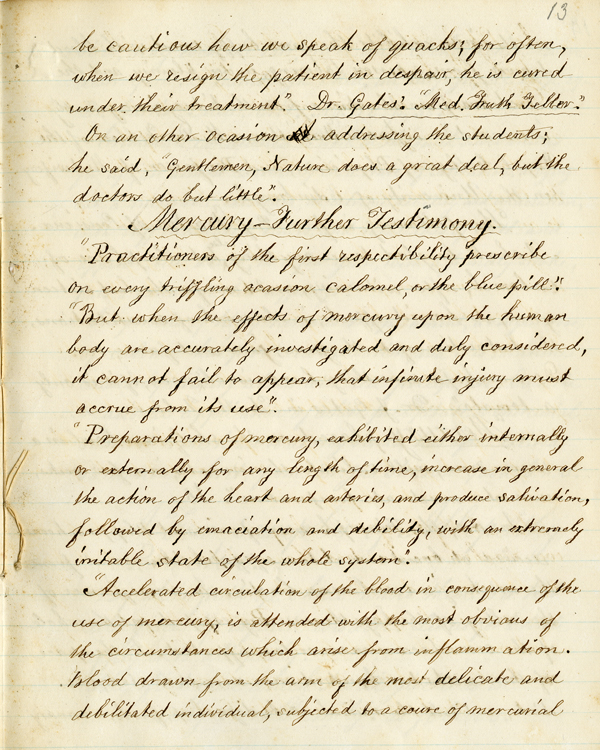 13
be cautious how we speak of quacks; for often,
when we resign the patient in despair, he is cured
under their treatment". Dr. Gates'. "Med. Truth Teller."
On an other ocasion addressing the students;
he said, "Gentlemen, Nature does a great deal, but the
doctors do but little".
Mercury—Further Testimony.
"Practitioners of the first respectibility prescribe
on every triffling acasion calomel, or the blue pill".
"But when the effects of mercury upon the human
body are accurately investigated and duly considered,
it cannot fail to appear, that infinite injury must
accrue from its use".
"Preparations of mercury, exhibited either internally
or externally for any length of time, increase in general
the action of the heart and arteries, and produce salivation,
followed by emaciation and debility, with an extremely
irritable state of the whole system".
"Accelerated circulation of the blood in consequence of the
use of mercury, is attended with the most obvious of
the circumstances which arise from inflammation.
Blood drawn from the arm of the most delicate and
debilitated individual, subjected to a coure of mercurial